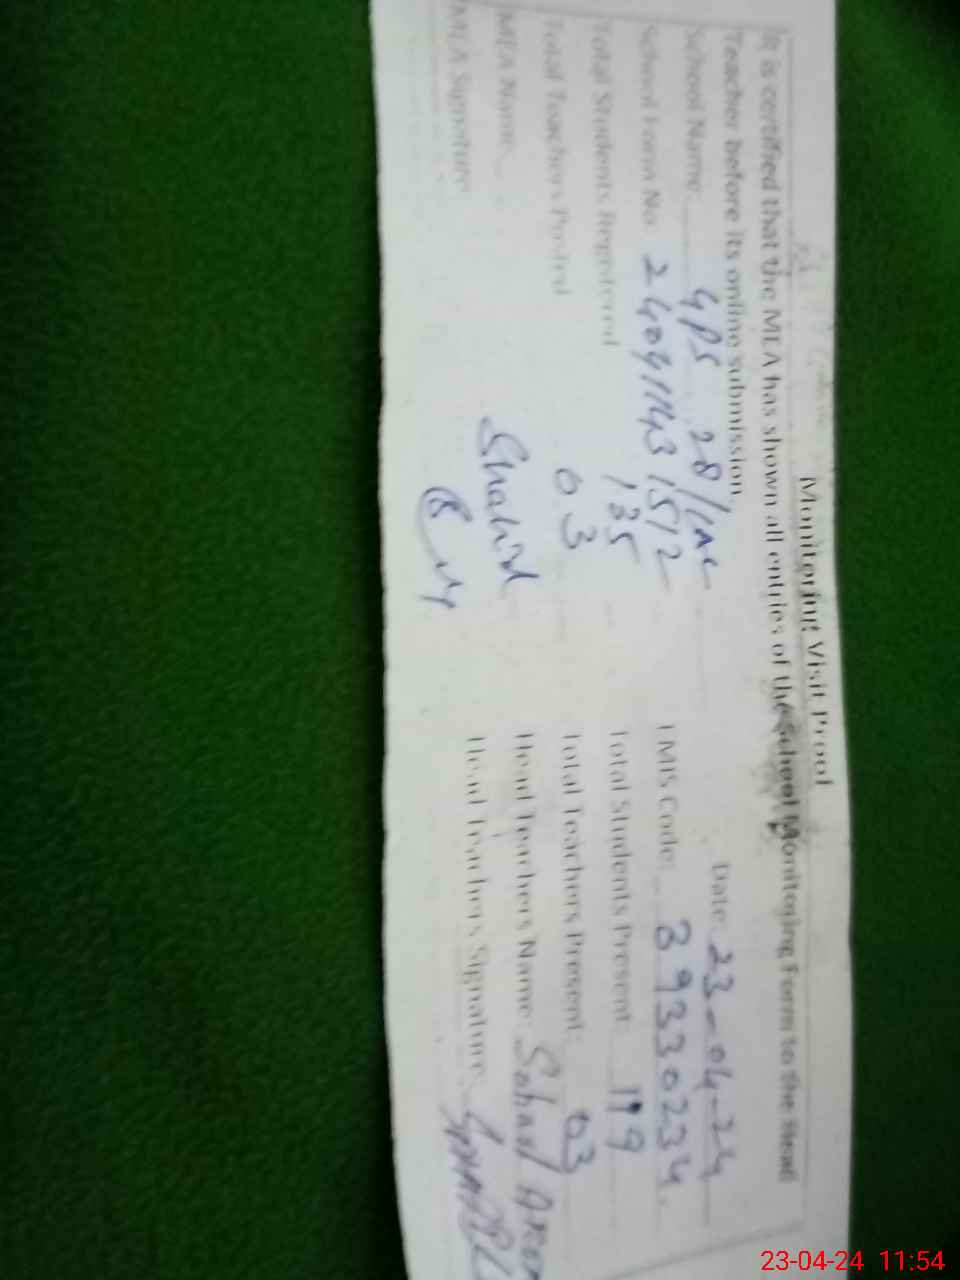 Monitoring Visit Proof
It is certified that the MEA has shown all entries of the School Monitoring Form to the Head
Teacher before its online submission.
Date: 23-04-24
School Name: GPS 28/
School Form No. 24041143 1512 EMIS Code: 39330234
Total Students Registered 135 Total Students Present: 119
Total Teachers Posted 03 Total Teachers Present: 03
MEA Name Shahid Head Teachers Name: Sohail
MEA Signature Head Teachers Signature:
23-04-24 11:54